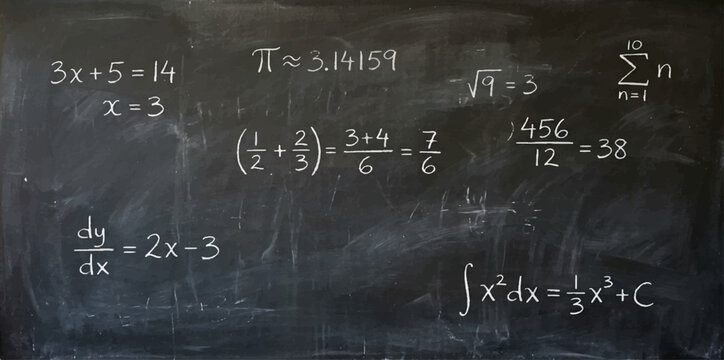 3x+5=14
x=3
π≈3.14159
√9=3
10
∑ n
n=1
(1/2+2/3)=3+4/6=7/6
456/12=38
dy/dx=2x-3
∫x²dx=1/3x³+C